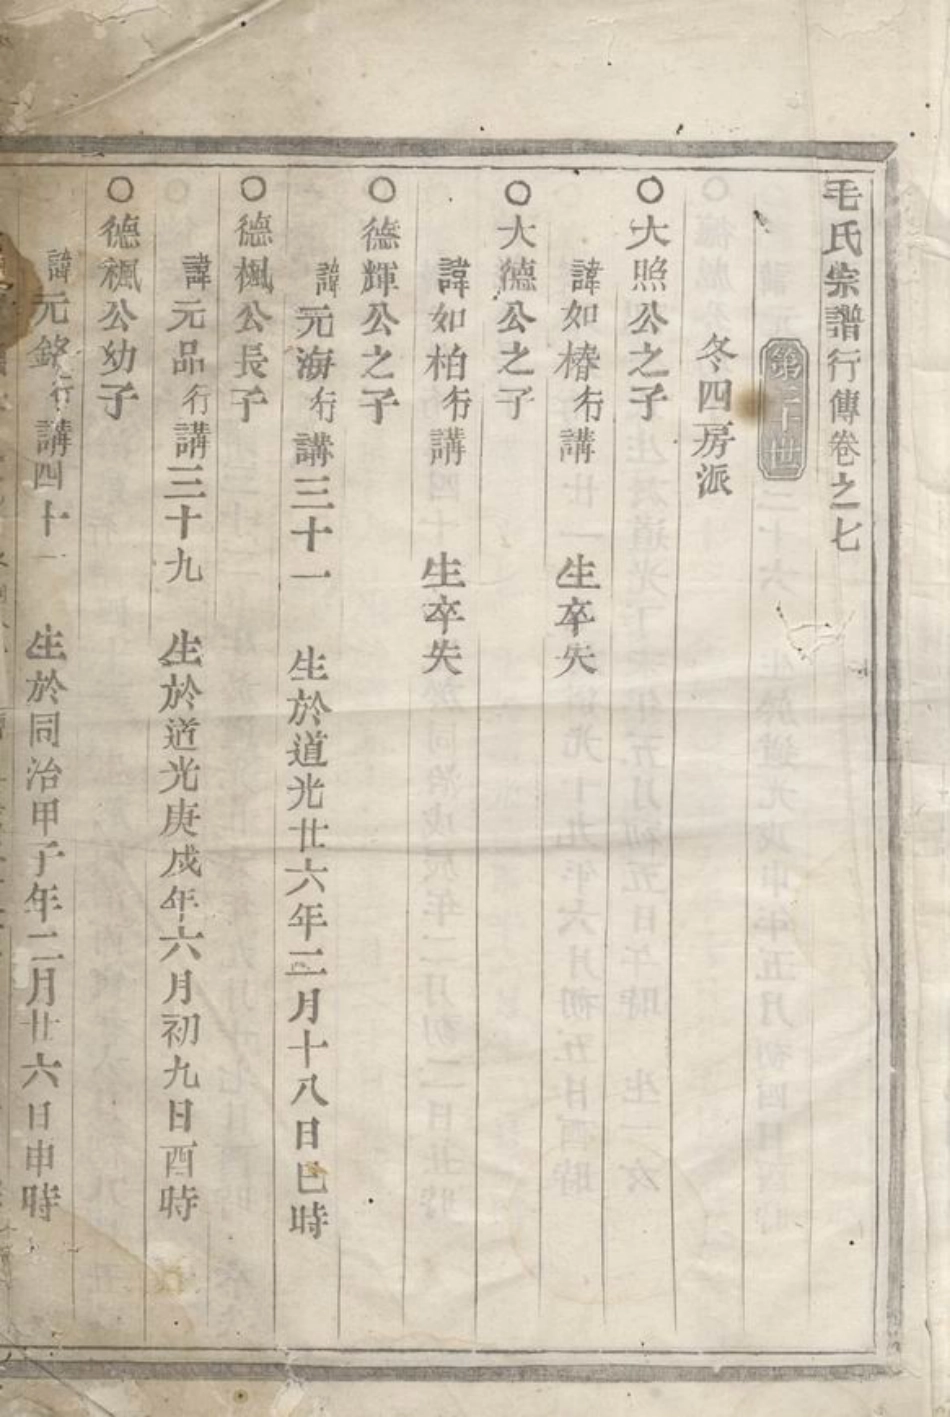 毛氏宗譜行傳卷之七
第三十世
冬四房派
○大照公之子
諱如椿行講 生卒失
○大德公之子
諱如柏行講 生卒失
○德輝公之子
諱元海行講三十一 生於道光廿六年二月十八日巳時
○德楓公長子
諱元品行講三十九 生於道光庚戍年六月初九日酉時
○德楓公幼子
諱元銘行講四十一 生於同治甲子年二月廿六日申時